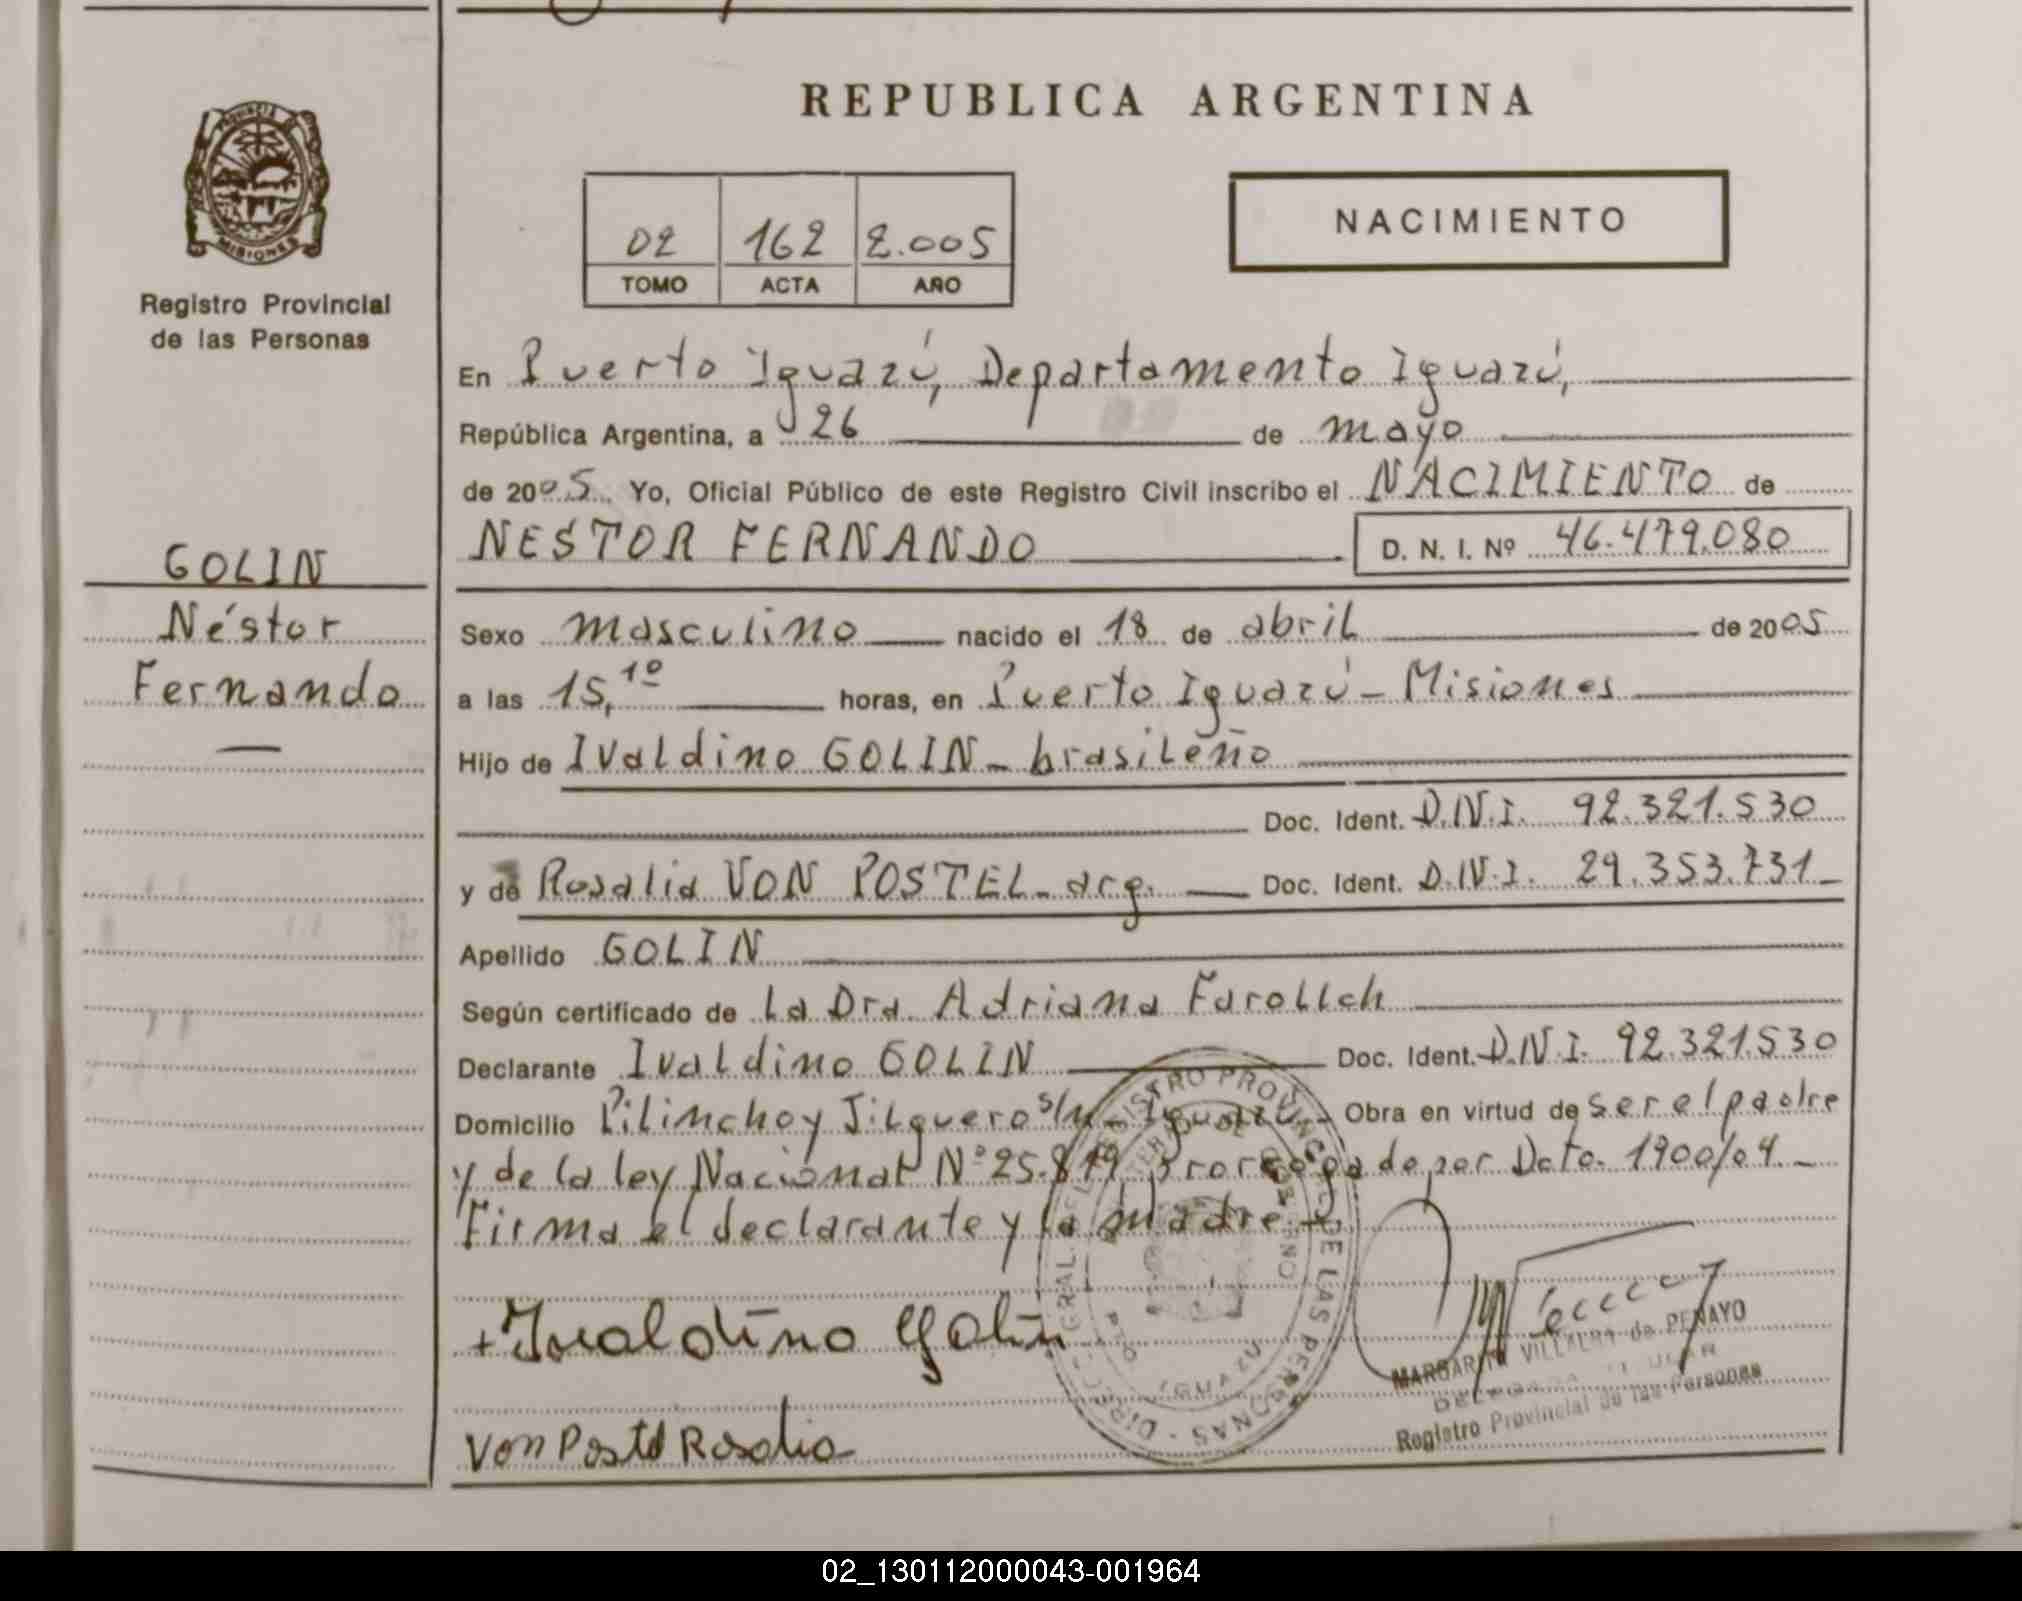 REPUBLICA ARGENTINA
PROVINCIA DE
MISIONES
Registro Provincial
de las Personas
02 162 2.005
TOMO ACTA AÑO
NACIMIENTO
En Puerto Iguazú, Departamento Iguazú,
República Argentina, a 26 de mayo
de 2005 Yo, Oficial Público de este Registro Civil inscribo el NACIMIENTO de
NESTOR FERNANDO D. N. I. Nº 46.479.080
GOLIN
Néstor
Fernando
Sexo masculino nacido el 18 de abril de 2005
a las 15,10 horas, en Puerto Iguazú - Misiones
Hijo de Ivaldino GOLIN - brasileño
Doc. Ident. D.N.I. 92.321.530
y de Rosalia VON POSTEL - arg. Doc. Ident. D.N.I. 29.353.731
Apellido GOLIN
Según certificado de La Dra. Adriana Farollch
Declarante Ivaldino GOLIN Doc. Ident. D.N.I. 92.321.530
Domicilio Pilincho y Jilguero s/n - Iguazú - Obra en virtud de ser el padre
y de la ley Nacional Nº 25.819 prorrogada por Dcto. 1900/04 -
Firma el declarante y la madre -
+ Ivaldino Golin
Von Postel Rosalia
REGISTRO PROVINCIAL DE LAS PERSONAS - DIR. GRAL.
IGUAZU
MARGARITA VILLALBA de PENAYO
DELEGADA TITULAR
Registro Provincial de las Personas
02_130112000043-001964